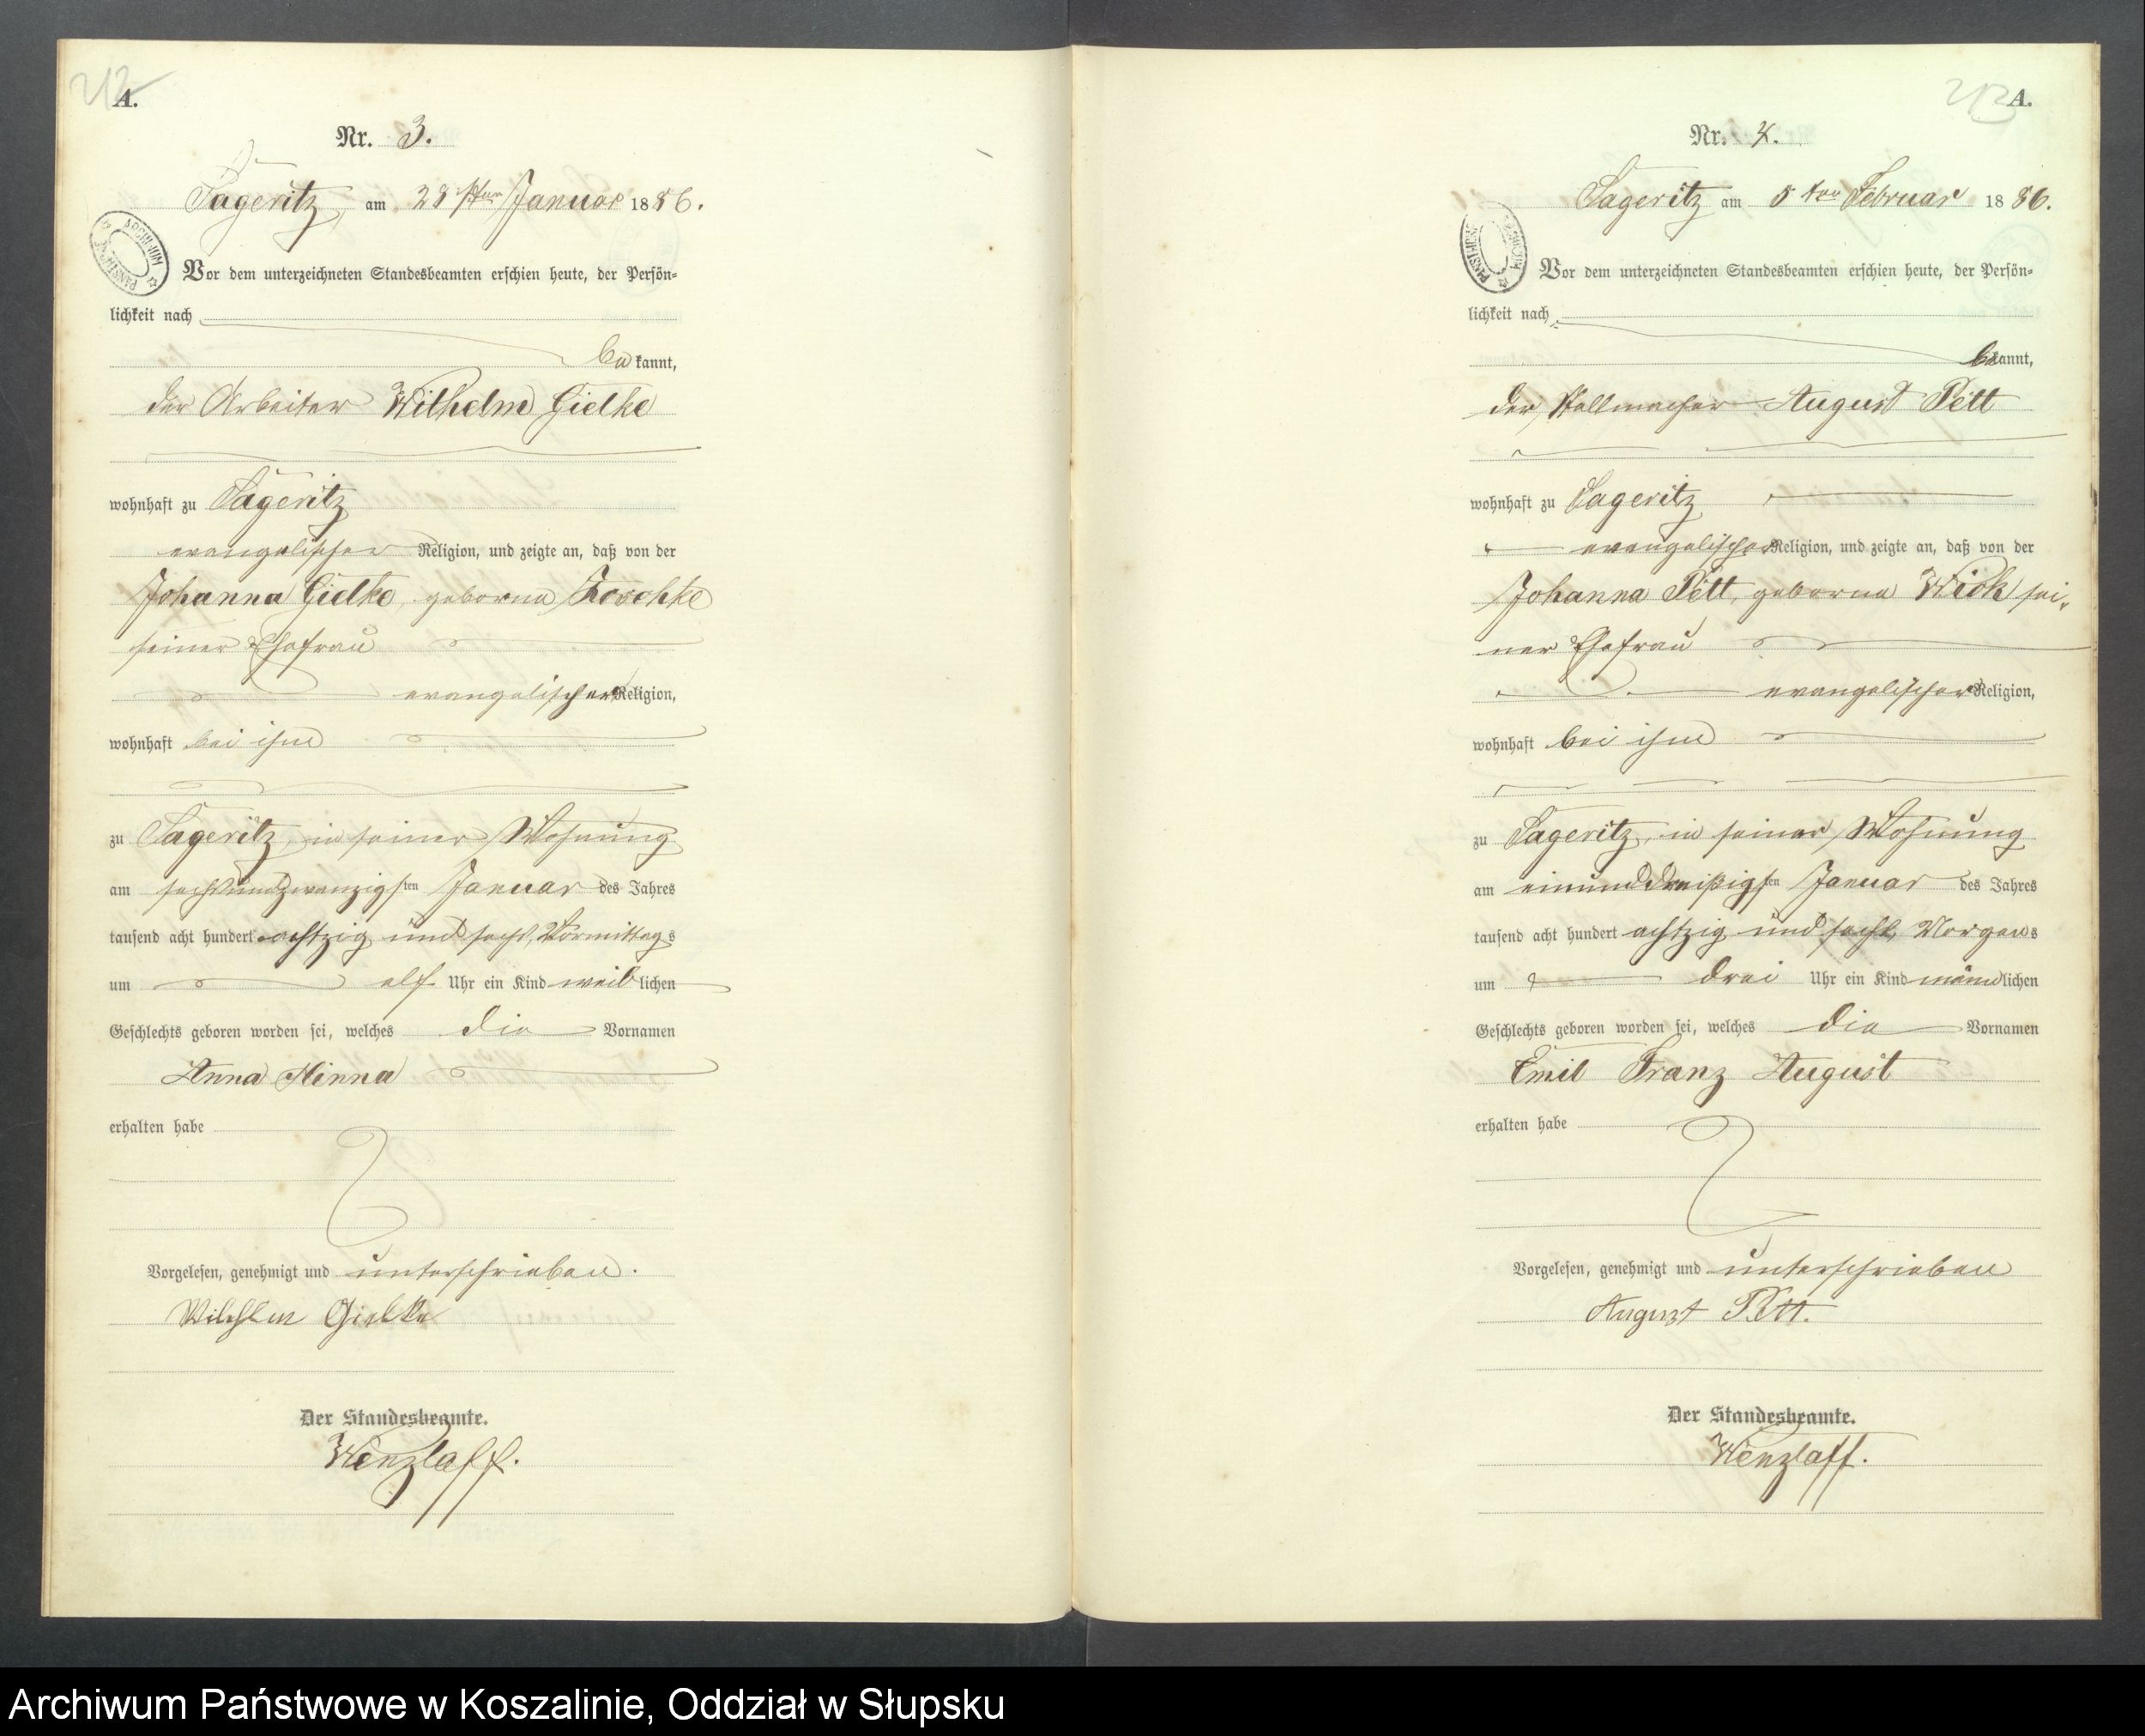 212
A.
Nr. 3.
Sageritz, am 28sten Januar 1886.
ARCHIWUM PAŃSTWOWE
Vor dem unterzeichneten Standesbeamten erschien heute, der Persön=
lichkeit nach
bekannt,
der Arbeiter Wilhelm Gielke
wohnhaft zu Sageritz
evangelischer Religion, und zeigte an, daß von der
Johanna Gielke, geborne
seiner Ehefrau
evangelischer Religion,
wohnhaft bei ihm
zu Sageritz, in seiner Wohnung
am sechsundzwanzigsten Januar des Jahres
tausend acht hundert achtzig und sechs, Vormittags
um elf Uhr ein Kind weiblichen
Geschlechts geboren worden sei, welches die Vornamen
Anna Minna
erhalten habe
Vorgelesen, genehmigt und unterschrieben.
Wilhelm Gielke
Der Standesbeamte.
Wenzlaff.
213
A.
Nr. 4.
Sageritz am 5ten Februar 1886.
ARCHIWUM PAŃSTWOWE
Vor dem unterzeichneten Standesbeamten erschien heute, der Persön=
lichkeit nach
bekannt,
der Stellmacher August Pett
wohnhaft zu Sageritz
evangelischer Religion, und zeigte an, daß von der
Johanna Pett, geborne Wick sei-
ner Ehefrau
evangelischer Religion,
wohnhaft bei ihm
zu Sageritz, in seiner Wohnung
am einunddreißigsten Januar des Jahres
tausend acht hundert achtzig und sechs, Morgens
um drei Uhr ein Kind männlichen
Geschlechts geboren worden sei, welches die Vornamen
Emil Franz August
erhalten habe
Vorgelesen, genehmigt und unterschrieben
August Pett.
Der Standesbeamte.
Wenzlaff.
Archiwum Państwowe w Koszalinie, Oddział w Słupsku